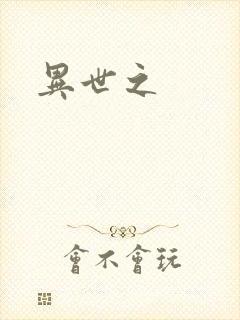 異世之
會不會玩